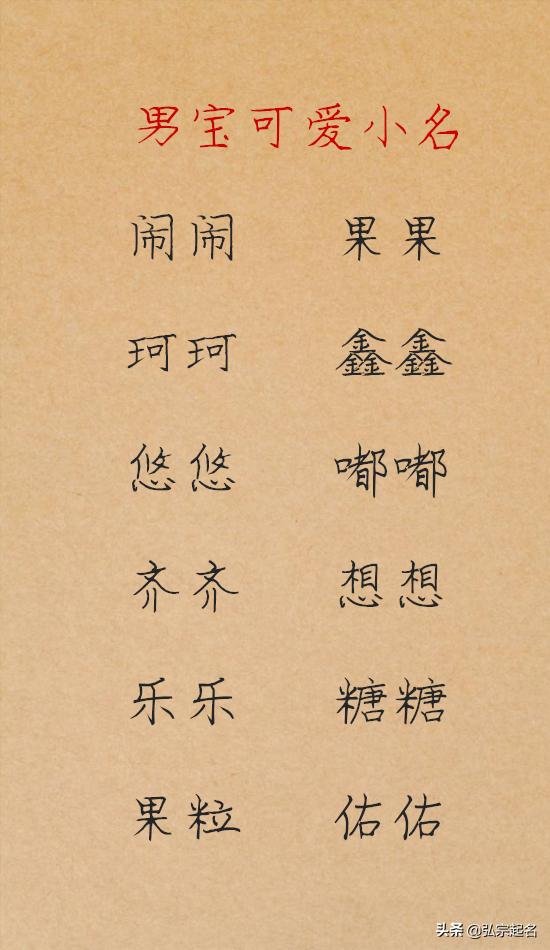 男宝可爱小名
闹闹 果果
珂珂 鑫鑫
悠悠 嘟嘟
齐齐 想想
乐乐 糖糖
果粒 佑佑
头条 @弘宗起名